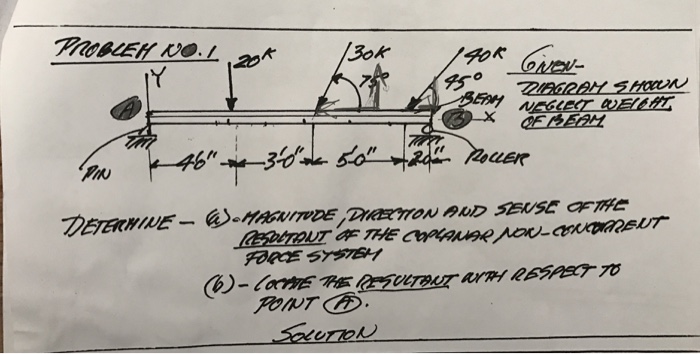 PROBLEM NO. 1
20K
30K
40K
GIVEN-
Y
75°
45°
DIAGRAM SHOWN
BEAM
NEGLECT WEIGHT
A
B
X
OF BEAM
PIN
4'6"
3'0"
5'0"
2'0"
ROLLER
DETERMINE - (a)-MAGNITUDE, DIRECTION AND SENSE OF THE
RESULTANT OF THE COPLANAR, NON-CONCURRENT
FORCE SYSTEM
(b)-LOCATE THE RESULTANT WITH RESPECT TO
POINT A.
SOLUTION